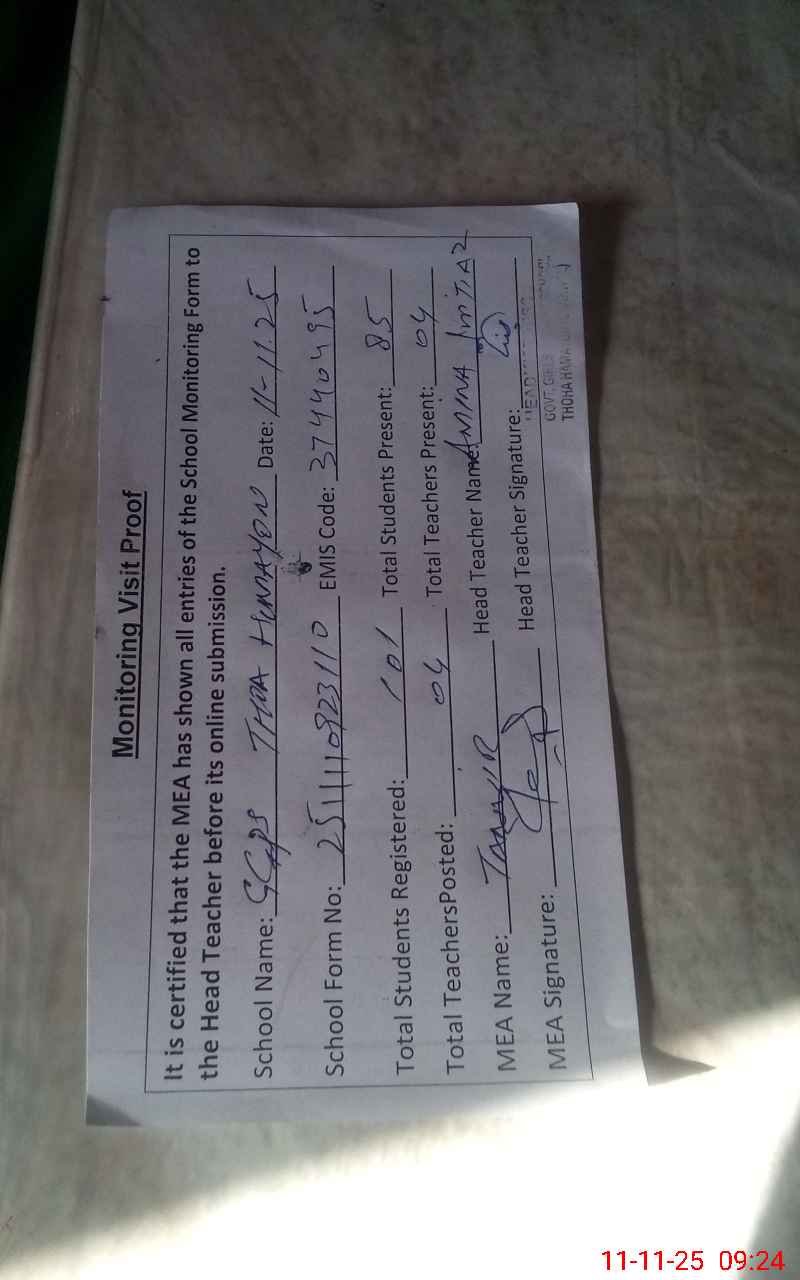 Monitoring Visit Proof
It is certified that the MEA has shown all entries of the School Monitoring Form to
the Head Teacher before its online submission.
School Name: GGPS THOA HUMAYON Date: 11-11.25
School Form No: 2511110823110 EMIS Code: 37440495
Total Students Registered: 101 Total Students Present: 85
Total TeachersPosted: 04 Total Teachers Present: 04
MEA Name: Head Teacher Name: AMINA IMTIAZ
MEA Signature: Head Teacher Signature:
HEAD
GOVT. GIRLS
THOHA HAMA
11-11-25 09:24